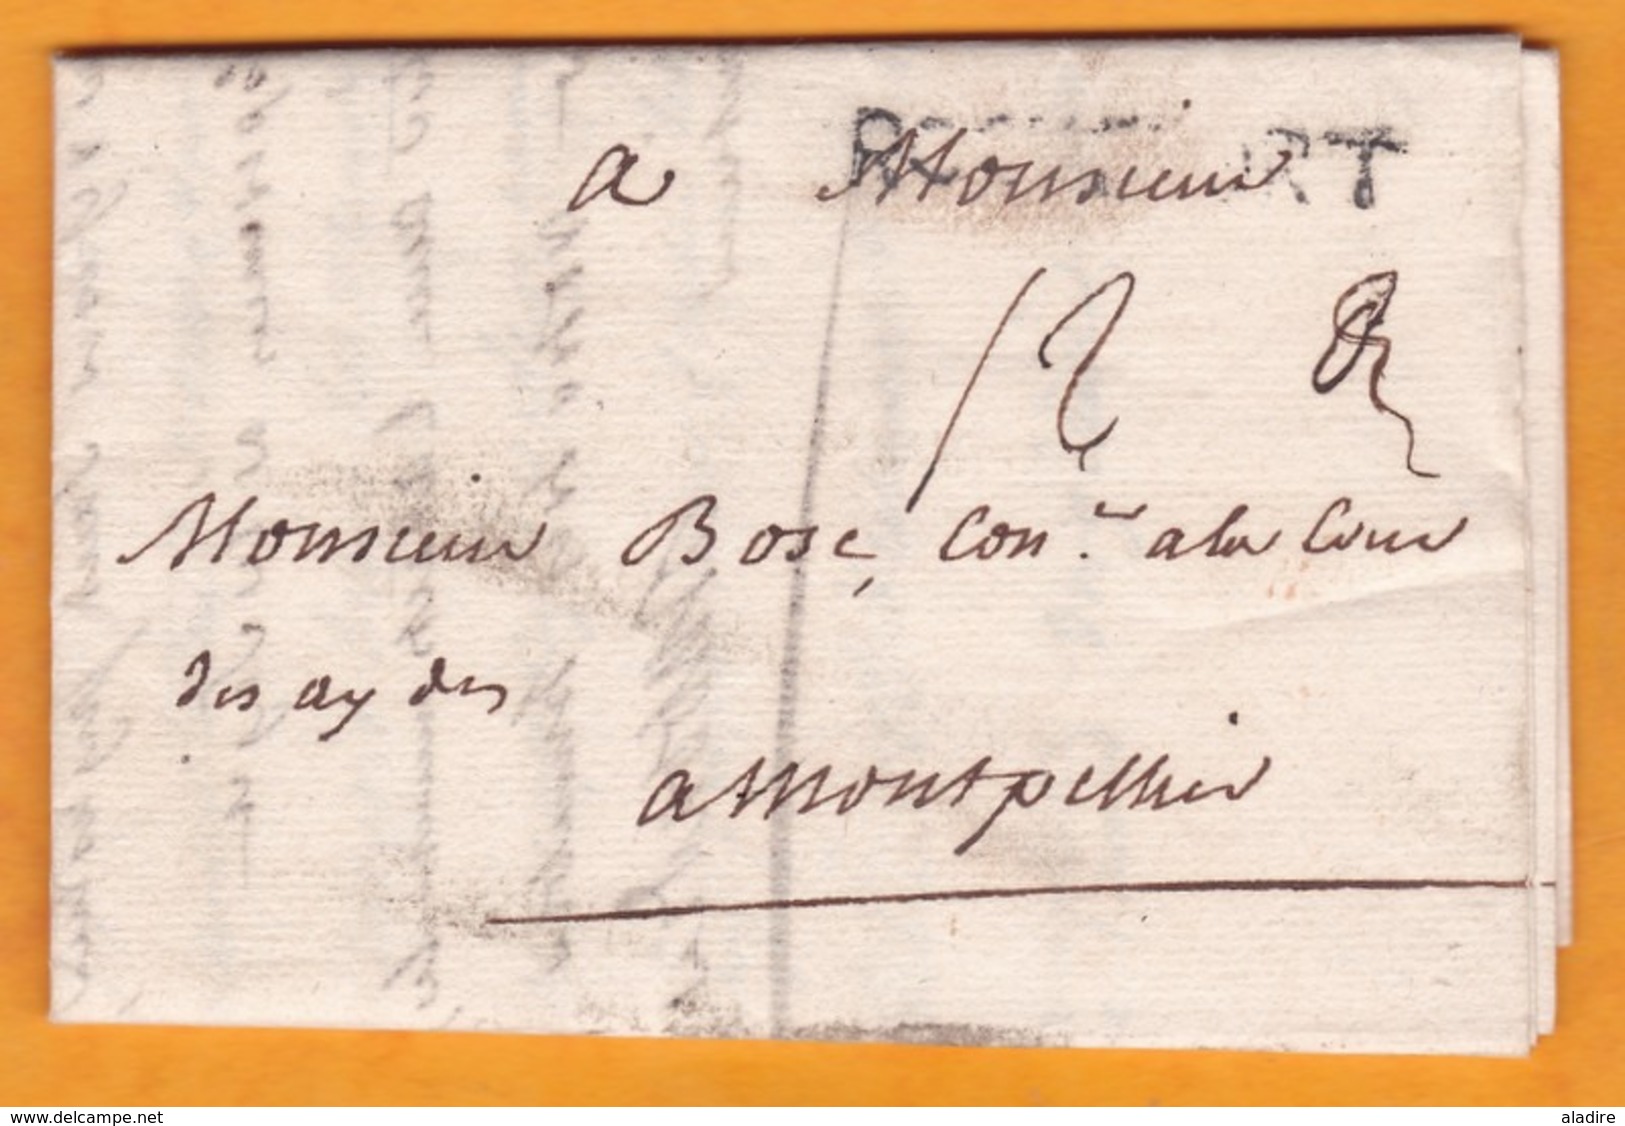 a Monsieur
RT
12
Monsieur Bosc, Con.er a la Cour
des aydes
a Montpellier
www.delcampe.net
aladire